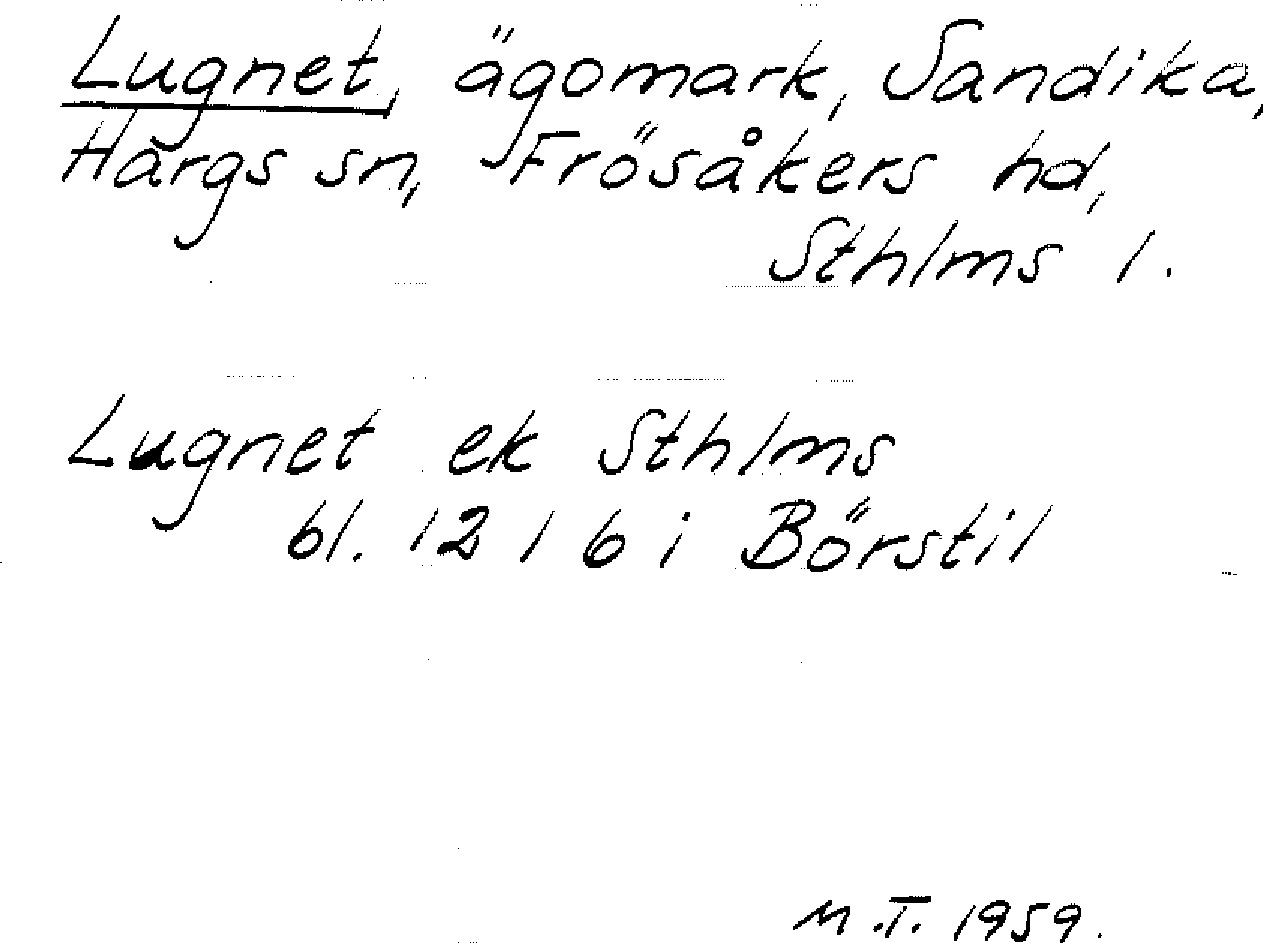 Lugnet, ägomark, Sandika,
Hargs sn, Frösåkers hd,
Sthlms l.
Lugnet ek Sthlms
bl. 12 1 6 i Börstil
M.T. 1959.